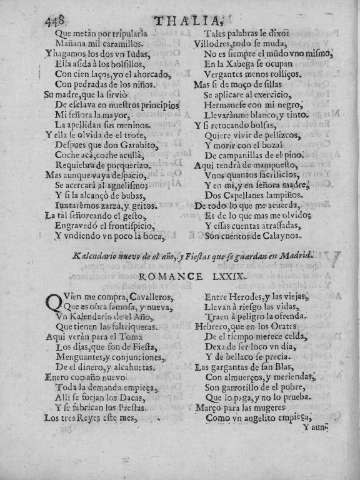 448 THALIA,
Que metan por tripularla
Mañana mil caramillos.
Y hagamos los dos vn Iudas,
Ella asida à los bolsillos,
Con cien laços, yo el ahorcado,
Con pedradas de los niños.
Su madre, que la siruiò
De esclaua en nuestros principios
Mi señora la mayor,
La apellidan sus meninos.
Y ella se olvida de el trote,
Despues que don Garabito,
Coche acà, coche acullà,
Requiebra de puequerizo.
Mas aunque vaya despacio,
Se acercarà al agnelismo;
Y si la alcançò de bubas,
Tuntarèmos zarza, y gritos.
La tal señoreando el gesto,
Engravedò el frontispicio,
Y vndiendo vn poco la boca,
Tales palabras le dixo:
Villodres, todo se muda,
No es siempre el mũdo vno mismo,
En la Xabega se ocupan
Vergantes menos rolliços.
Mas si de moço de sillas
Se aplicare al exercicio,
Hermanese con mi negro,
Llevaránme blanco, y tinto.
Y si retocando bolsas,
Quiere vivir de pellizcos,
Y morir con el bozal
De campanillas de el pino.
Aqui tendrà de manpuesto,
Vnos quantos sacrificios,
Y en mi, y en señora madre,
Dos Capellanes lampiños.
De todo lo que me acuerda,
Et de lo que mas me olvido;
Y essas cuentas atrasadas,
Son cuentos de Calaynos.
Kalendario nuevo de el año, y Fiestas que se guardan en Madrid.
ROMANCE LXXIX.
QVien me compra, Cavalleros,
Que es obra famosa, y nueva,
Vn Kalendario de el Año,
Que tienen las faltriqueras.
Aqui veràn para el Toma
Los dias, que son de Fiesta,
Menguantes, y conjunciones,
De el dinero, y alcahuetas.
Enero con año nuevo
Toda la demanda empieça,
Alli se forjan los Dacas,
Y se fabrican los Prestas.
Los tres Reyes este mes,
Entre Herodes, y las viejas,
Llevan à riesgo las vidas,
Traen à peligro la ofrenda.
Hebrero, que en los Orates
De el tiempo merece celda,
Dexa de ser loco vn dia,
Y de bellaco se precia.
Las gargantas de san Blas,
Con almuerços, y meriendas,
Son garrotillo de el pobre,
Que lo paga, y no lo prueba.
Março para las mugeres
Como vn angelito empieça,
Y aunq̃